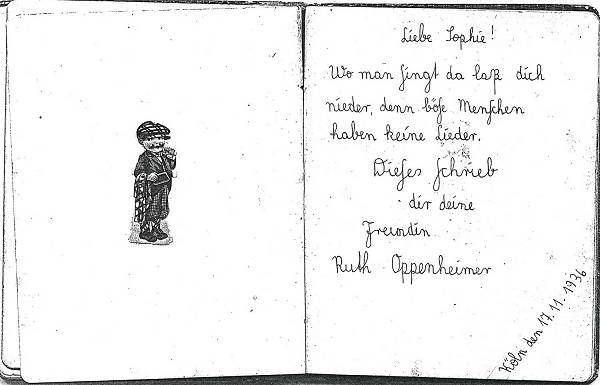 Liebe Sophie!
Wo man singt da laß dich
nieder, denn böse Menschen
haben keine Lieder.
Dieses schrieb
dir deine
Freundin
Ruth Oppenheimer
Köln den 17.11.1936